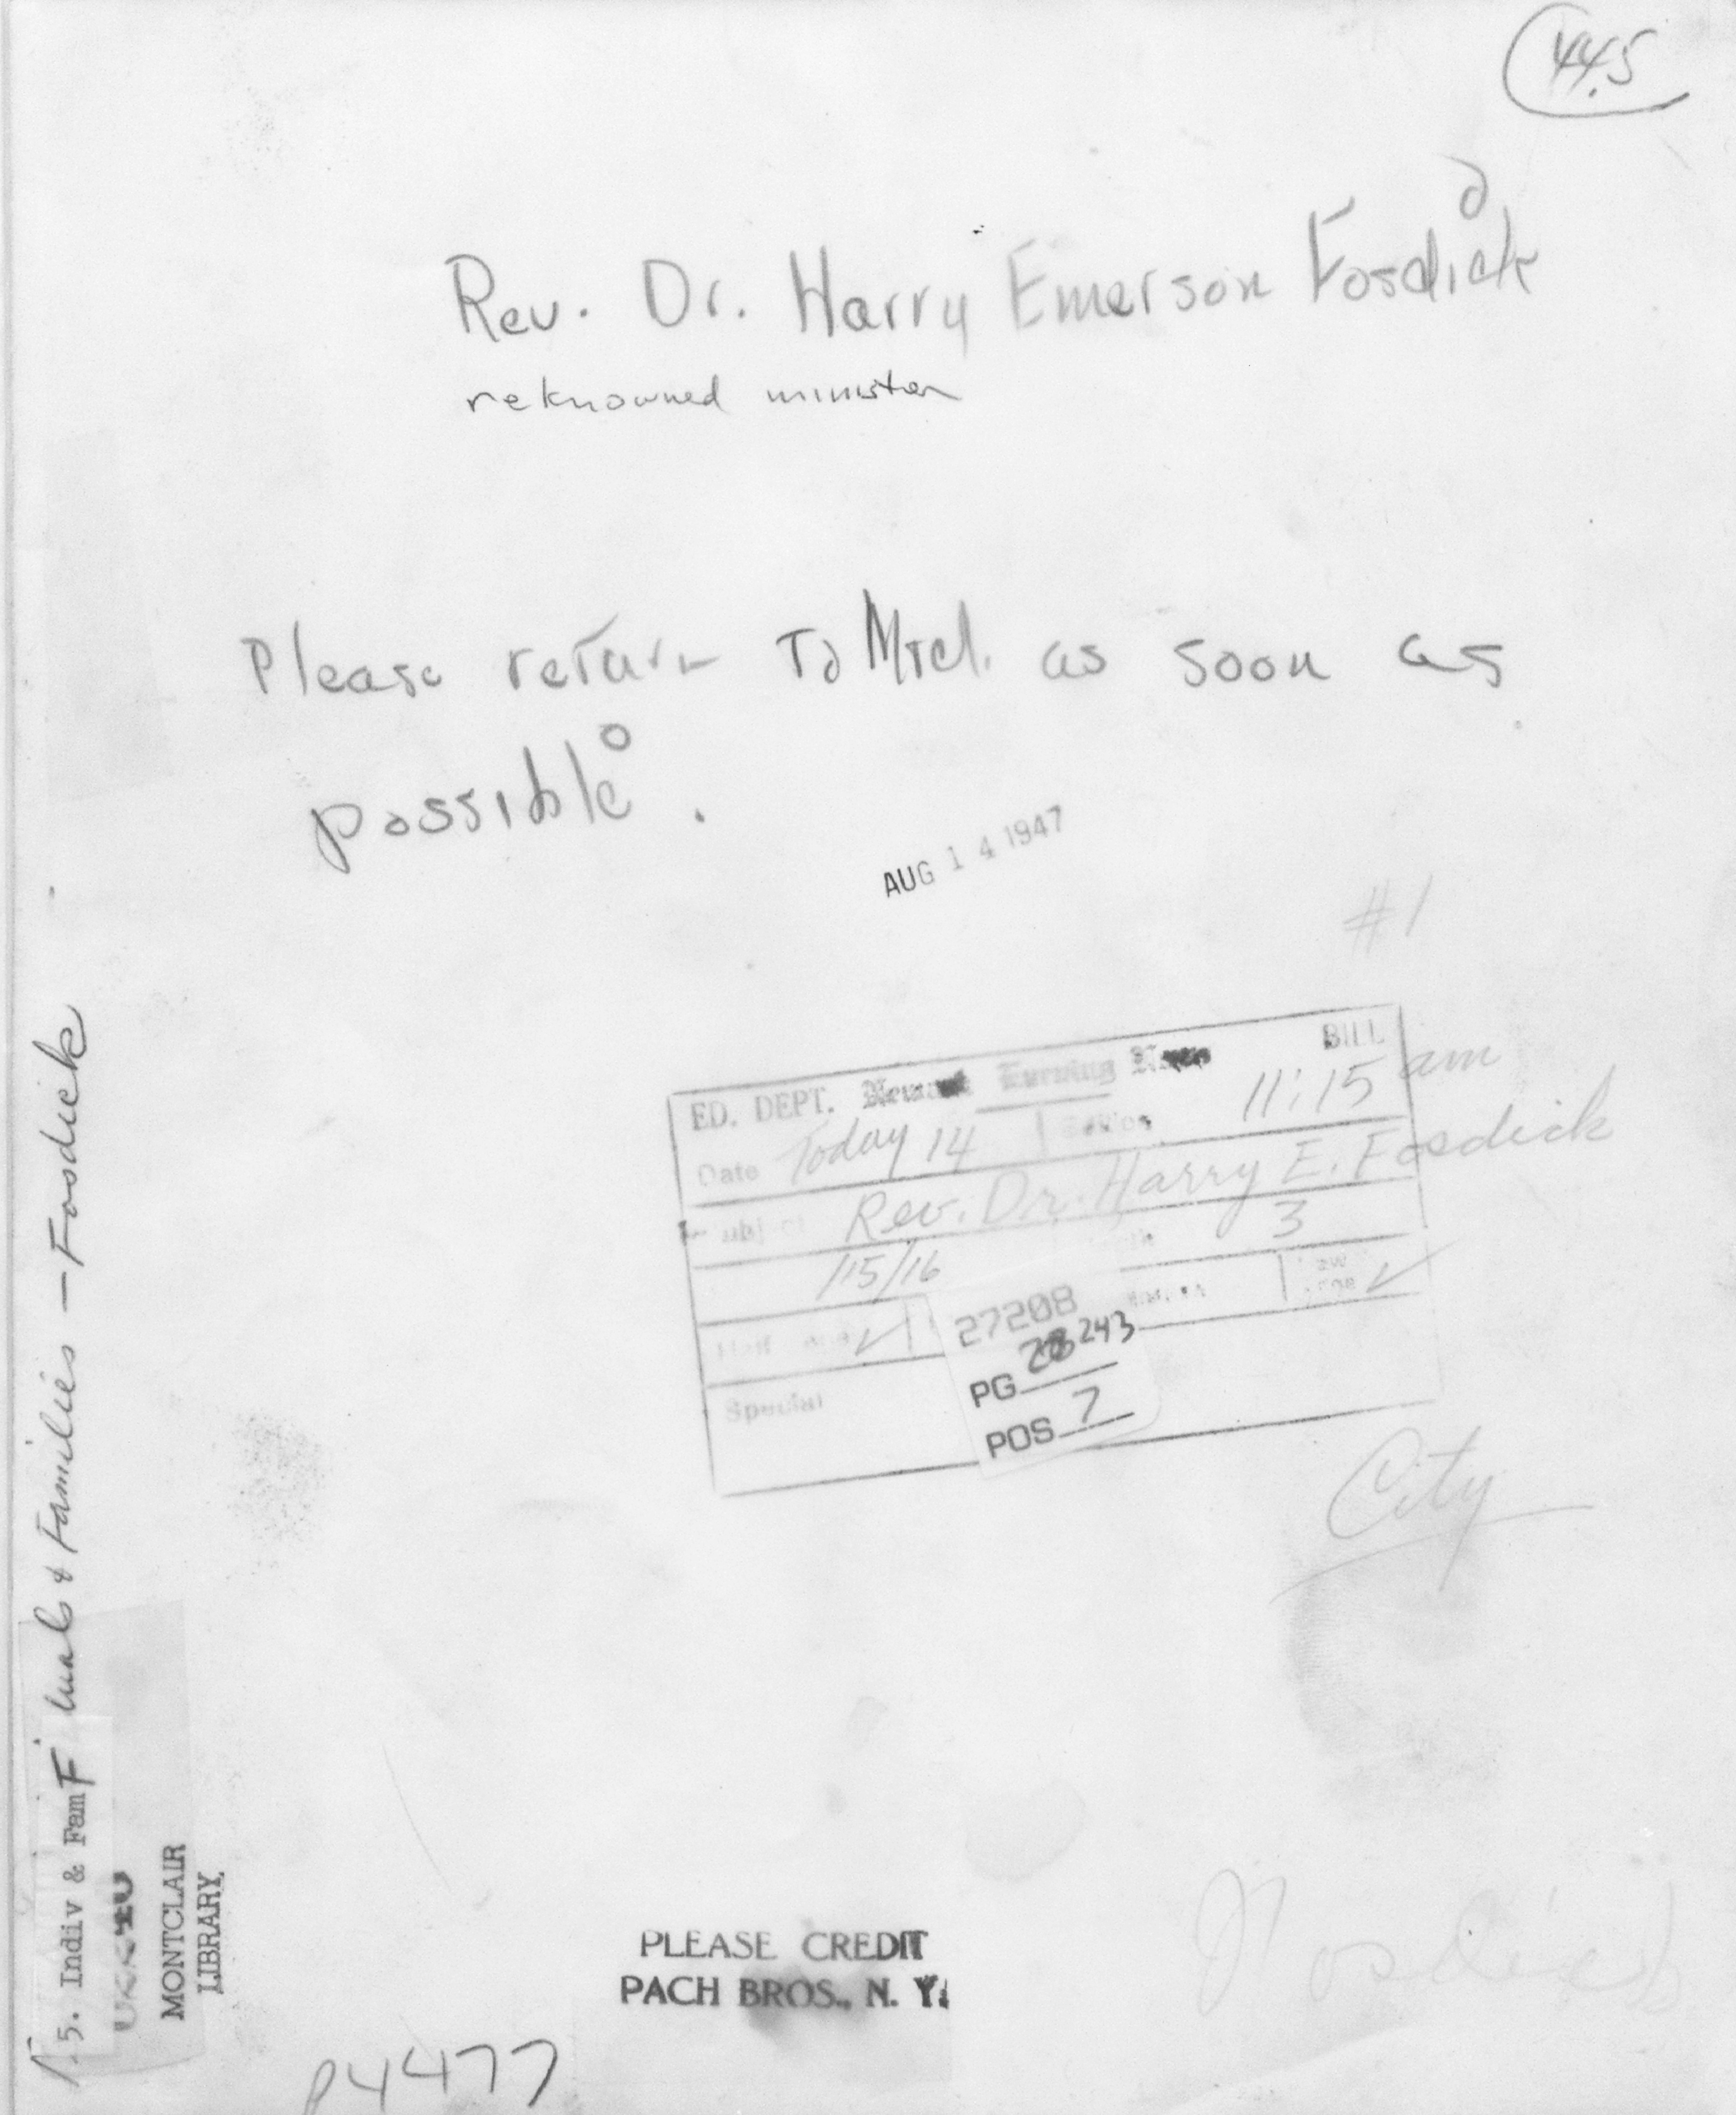 445
Rev. Dr. Harry Emerson Fosdick
reknowned minister
Please return To Mtcl. as soon as
possible.
AUG 14 1947
#1
ED. DEPT. Newark Evening News BILL
Date Today 14 Edition 11:15 am
Subject Rev. Dr. Harry E. Fosdick
15/16 3
Half ✓ ✓
27208
PG 243
POS 7
Special
City
5. Indiv & Fam F uals & Families — Fosdick
MONTCLAIR
LIBRARY
PLEASE CREDIT
PACH BROS., N. Y.
Fosdick
P4477